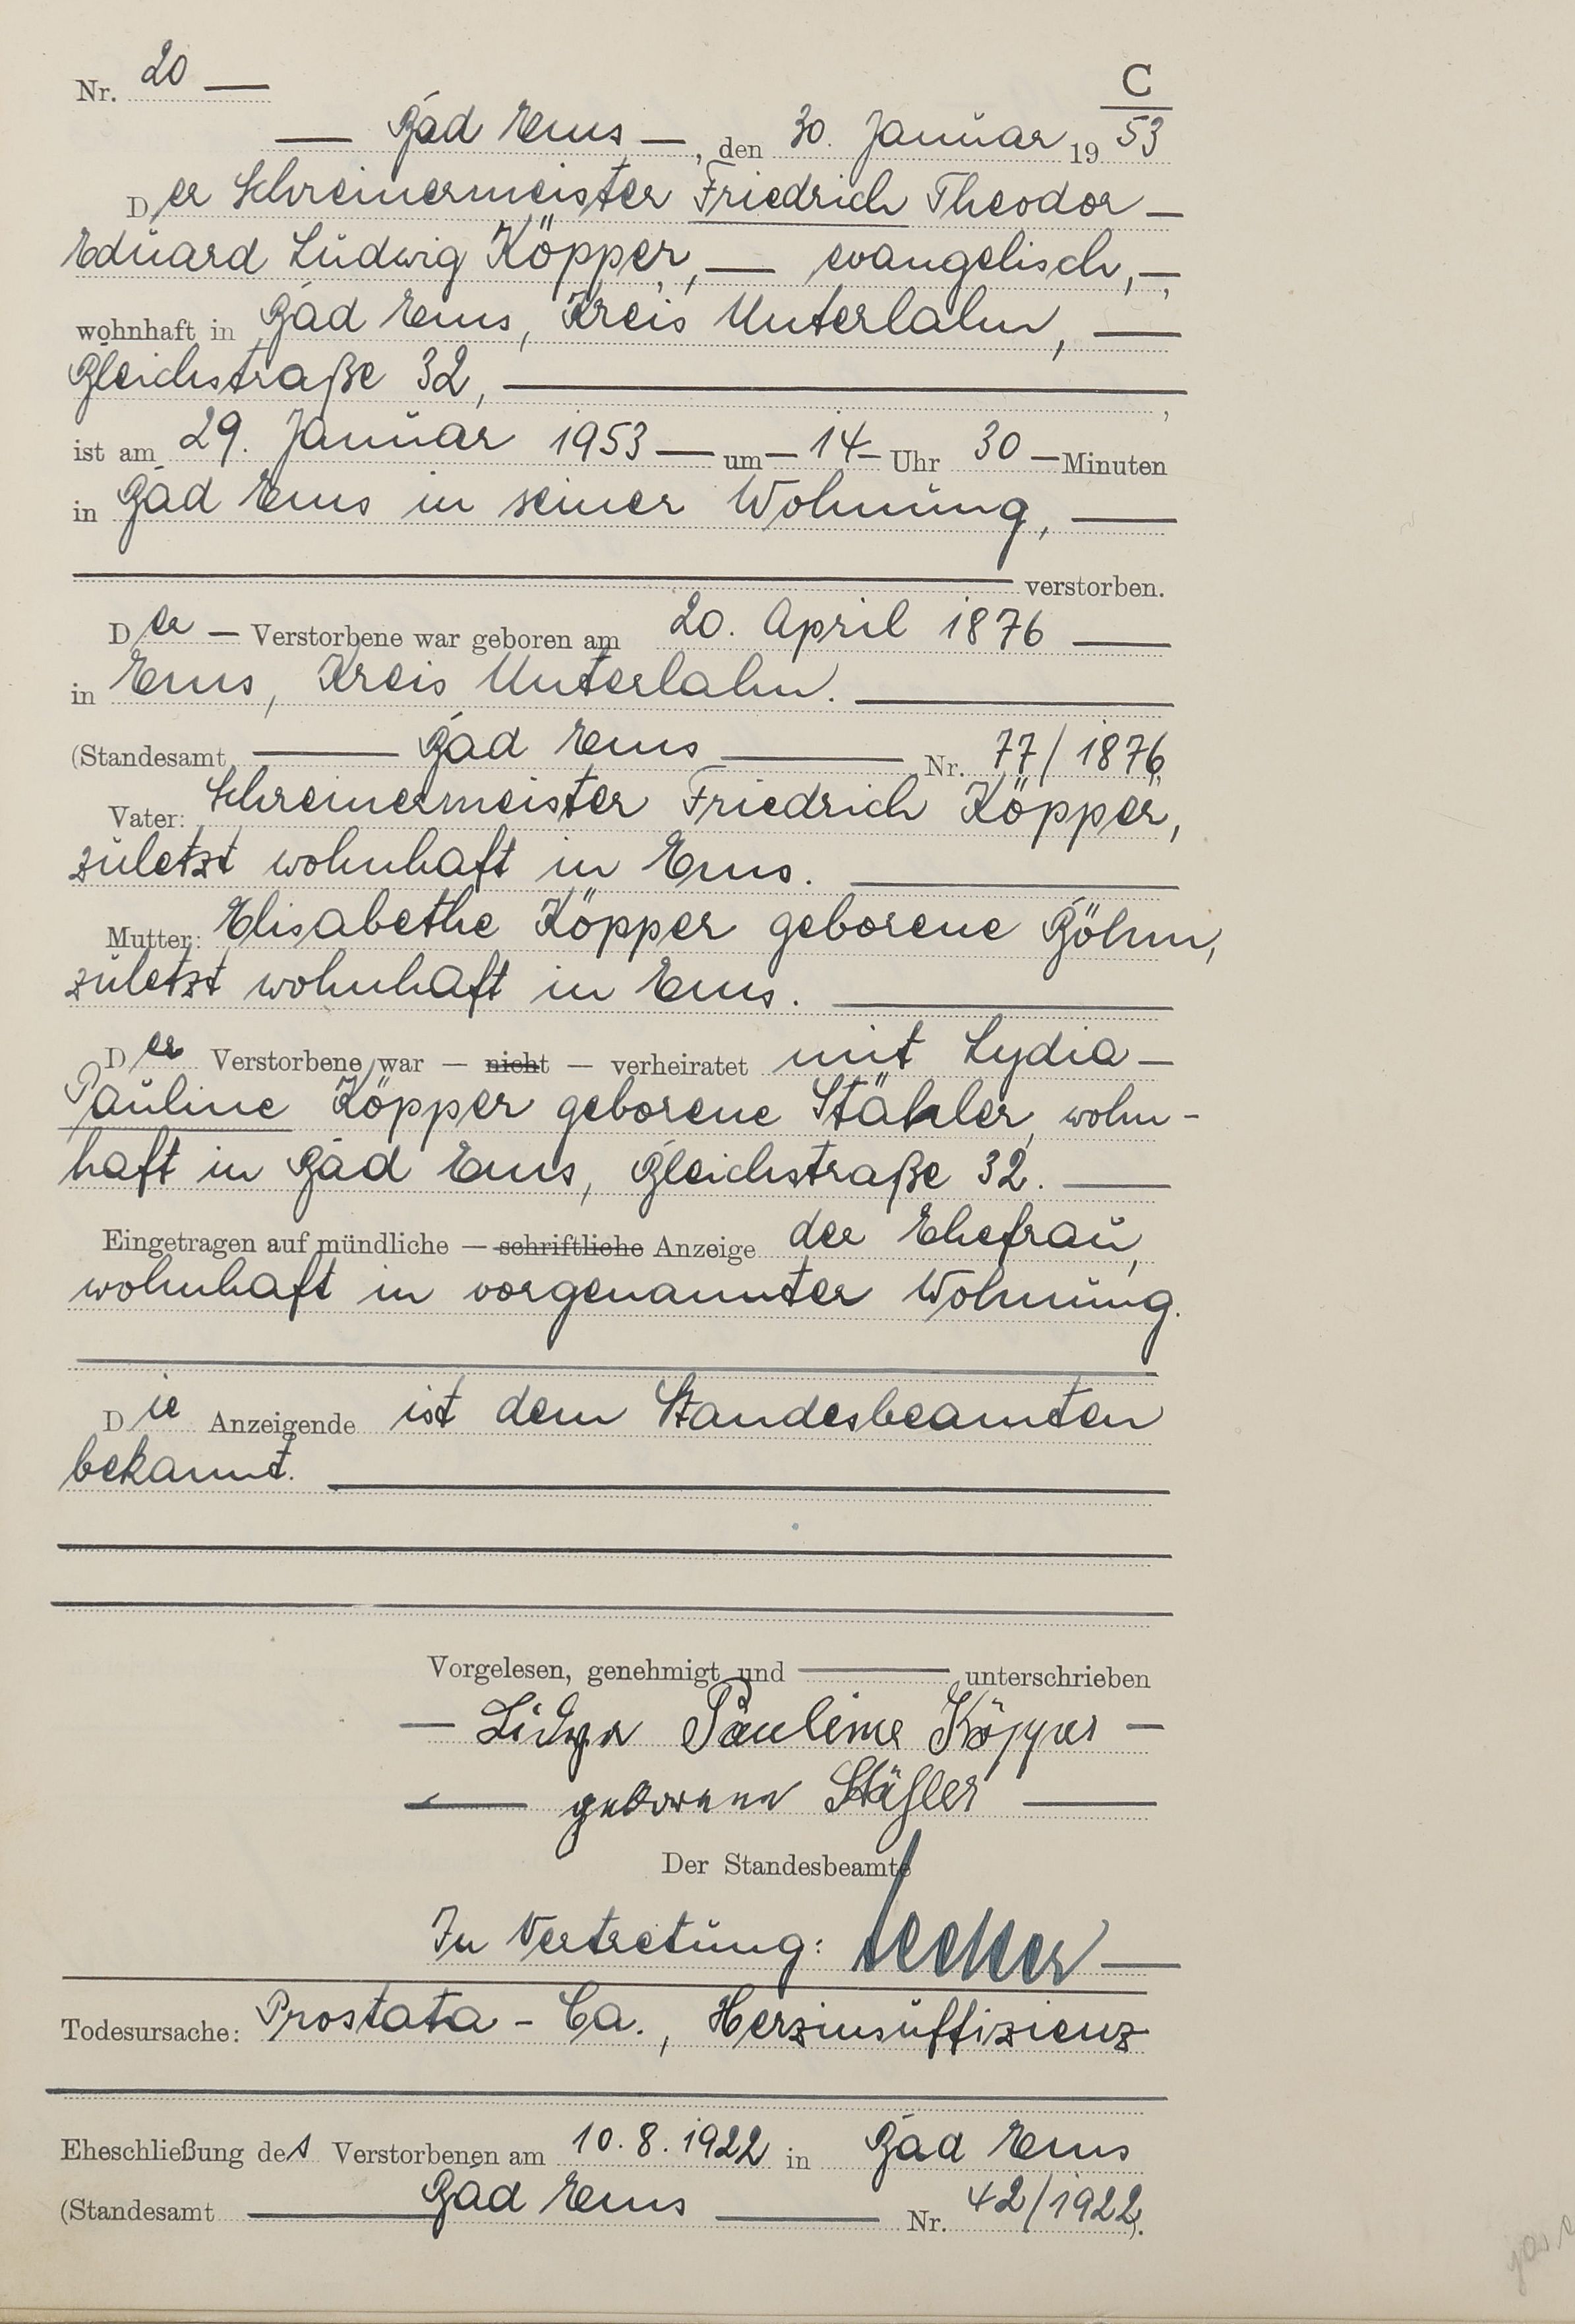 C
Nr. 20 —
— Bad Ems —, den 30. Januar 19 53
Der Schreinermeister Friedrich Theodor —
Eduard Ludwig Köpper, — evangelisch, —,
wohnhaft in Bad Ems, Kreis Unterlahn, —
Bleichstraße 32, —,
ist am 29. Januar 1953 — um — 14 — Uhr 30 — Minuten
in Bad Ems in seiner Wohnung, —
— verstorben.
Der — Verstorbene war geboren am 20. April 1876 —
in Ems, Kreis Unterlahn. —
(Standesamt — Bad Ems — Nr. 77/1876)
Vater: Schreinermeister Friedrich Köpper,
zuletzt wohnhaft in Ems. —
Mutter: Elisabethe Köpper geborene Böhm,
zuletzt wohnhaft in Ems. —
Der Verstorbene war — nicht — verheiratet mit Lydia —
Pauline Köpper geborene Stähler, wohn-
haft in Bad Ems, Bleichstraße 32. —
Eingetragen auf mündliche — schriftliche Anzeige der Ehefrau,
wohnhaft in vorgenannter Wohnung.
Die Anzeigende ist dem Standesbeamten
bekannt. —
Vorgelesen, genehmigt und — unterschrieben
— Lidya Pauline Köpper —
— geborene Stähler —
Der Standesbeamte
In Vertretung: —
Todesursache: Prostata - Ca., Herzinsuffizienz
Eheschließung des Verstorbenen am 10.8.1922 in Bad Ems
(Standesamt — Bad Ems — Nr. 42/1922).